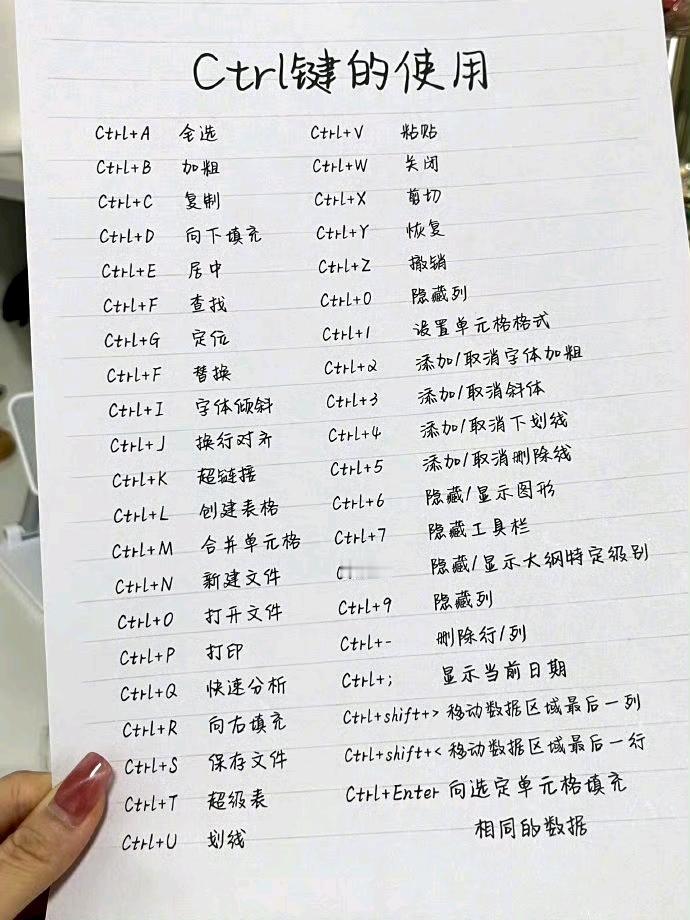 Ctrl键的使用
Ctrl+A 全选
Ctrl+B 加粗
Ctrl+C 复制
Ctrl+D 向下填充
Ctrl+E 居中
Ctrl+F 查找
Ctrl+G 定位
Ctrl+F 替换
Ctrl+I 字体倾斜
Ctrl+J 换行对齐
Ctrl+K 超链接
Ctrl+L 创建表格
Ctrl+M 合并单元格
Ctrl+N 新建文件
Ctrl+O 打开文件
Ctrl+P 打印
Ctrl+Q 快速分析
Ctrl+R 向右填充
Ctrl+S 保存文件
Ctrl+T 超级表
Ctrl+U 划线
Ctrl+V 粘贴
Ctrl+W 关闭
Ctrl+X 剪切
Ctrl+Y 恢复
Ctrl+Z 撤销
Ctrl+0 隐藏列
Ctrl+1 设置单元格格式
Ctrl+2 添加/取消字体加粗
Ctrl+3 添加/取消斜体
Ctrl+4 添加/取消下划线
Ctrl+5 添加/取消删除线
Ctrl+6 隐藏/显示图形
Ctrl+7 隐藏工具栏
隐藏/显示大纲特定级别
Ctrl+9 隐藏列
Ctrl+- 删除行/列
Ctrl+; 显示当前日期
Ctrl+shift+> 移动数据区域最后一列
Ctrl+shift+< 移动数据区域最后一行
Ctrl+Enter 向选定单元格填充
相同的数据